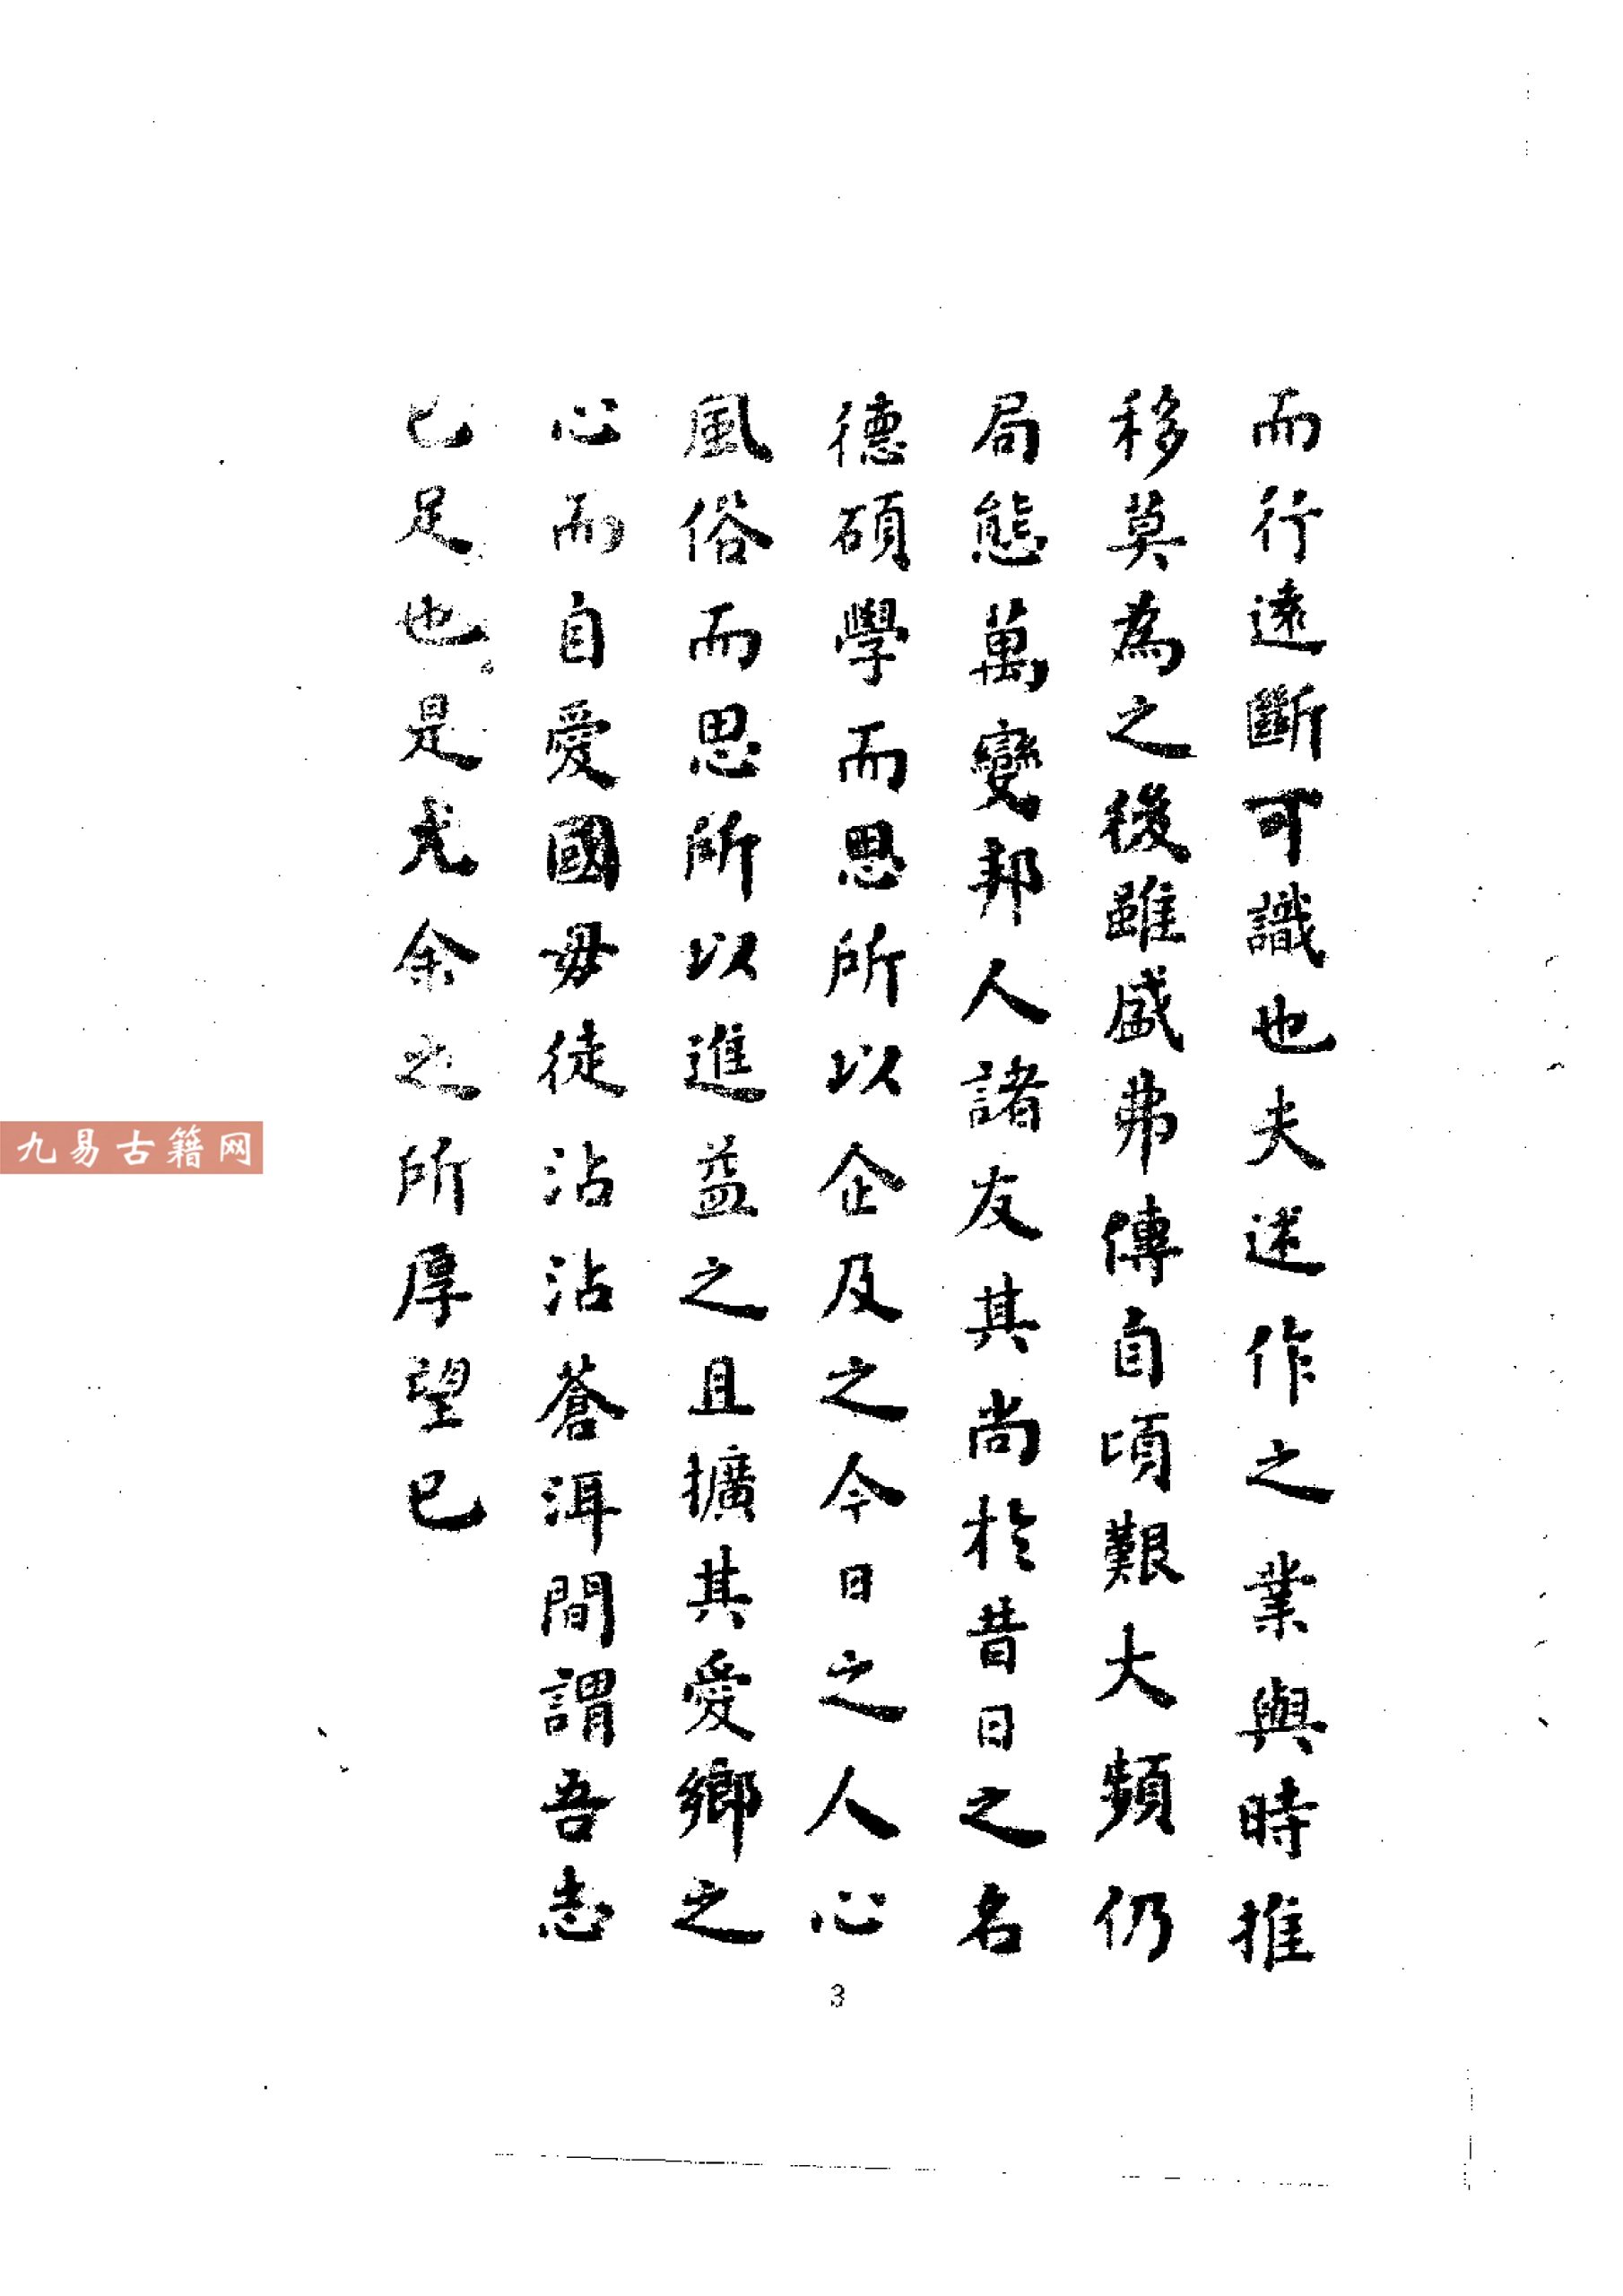 而行遠斷可識也夫述作之業與時推
移莫為之後雖盛弗傳自頃艱大頻仍
局態萬變邦人諸友其尚於昔日之名
德碩學而思所以企及之今日之人心
風俗而思所以進益之且擴其愛鄉之
心而自愛國毋徒沾沾蒼洱間謂吾志
已足也是尤余之所厚望已
3
九易古籍网